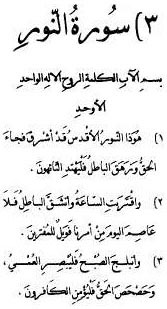 ٣) سُورَةُ النُّورِ
بِسمِ الآبِ الكَلِمَةِ الرُّوحِ الإلهِ الوَاحِدِ
الأوحَدِ
١) هُوَذَا النُّورُ الأَقْدَسُ قَدْ أَشرَقَ فَجَاءَ
الحَقُّ وَزَهَقَ البَاطِلُ فَلْيَهْتَدِ التَّائِهُونَ.
٢) وَاقْتَرَبَتِ السَّاعَةُ وَانْشَقَّ البَاطِلُ فَلَا
عَاصِمَ اليَومَ مِنْ أَمرِنَا فَوَيْلٌ لِلْمُفْتَرِينَ.
٣) وَانبَلَجَ الصُّبْحُ فَلْيُبْصِرِ العُمْيُ،
وَحَصْحَصَ الحَقُّ فَلْيُؤْمِنِ الكَافِرُونَ.